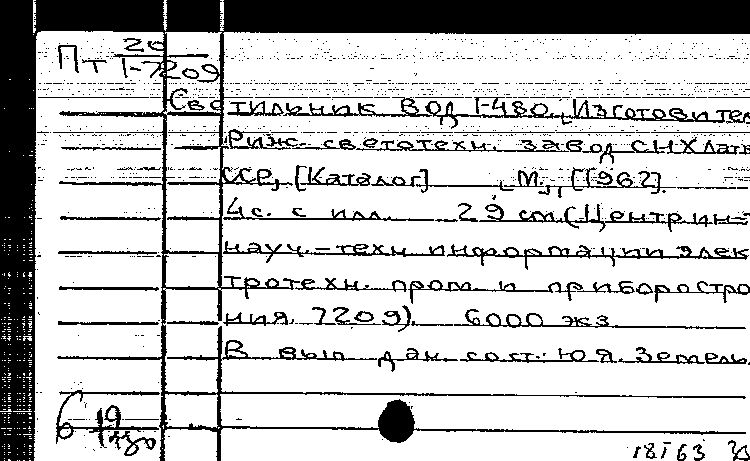 Пт 20
I-7209
Светильник ВОД I-480. Изготовител
Риж. светотехн. завод СНХ Латв
ССР, [Каталог] М., [I962].
4с. с илл. 29 см. (Центр ин-т
науч.-техн информации элек
тротехн. пром. и приборострое
ния. 7209). 6000 экз.
В вып дан. сост.: Ю.Я. Земель
6 19
18 I 63